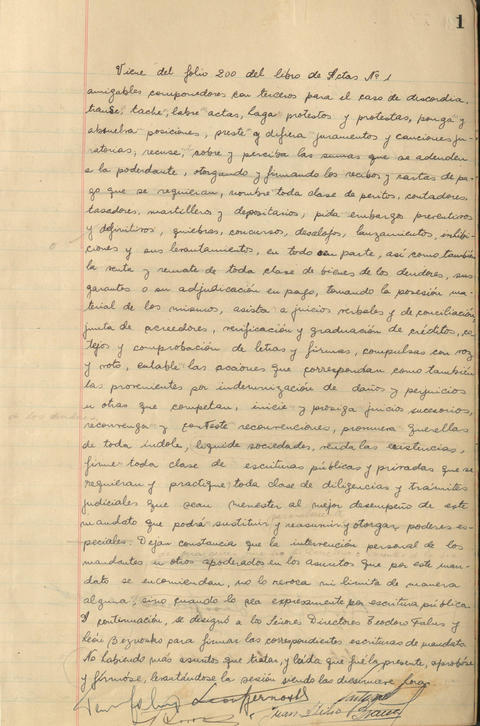 1
Viene del folio 200 del libro de Actas Nº 1
amigables componedores con terceros para el caso de discordia,
transe, tache, labre actas, haga protestos y protestas, ponga y
absuelva posiciones, preste y difiera juramentos y cauciones ju-
ratorias, recuse, cobre y perciba las sumas que se adeuden
a la poderdante, otorgando y firmando los recibos y cartas de pa-
go que se requieran, nombre toda clase de peritos, contadores,
tasadores, martilleros y depositarios, pida embargos preventivos
y definitivos, quiebras, concursos, desalojos, lanzamientos, inhibi-
ciones y sus levantamientos, en todo o en parte, así como también
la venta y remate de toda clase de bienes de los deudores, sus
garantes o su adjudicación en pago, tomando la posesión ma-
terial de los mismos, asista a juicios verbales y de conciliación,
junta de acreedores, verificación y graduación de créditos, co-
tejos y comprobación de letras y firmas, compulsas con voz
y voto, entable las acciones que correspondan como también
las provenientes por indemnización de daños y perjuicios
u otras que competan, inicie y prosiga juicios sucesorios,
reconvenga y conteste reconvenciones, promueva querellas
de toda índole, liquide sociedades, venda las existencias,
firme toda clase de escrituras públicas y privadas que se
requieran y practique toda clase de diligencias y trámites
judiciales que sean menester al mejor desempeño de este
mandato que podrá sustituir y reasumir y otorgar poderes es-
peciales. Dejan constancia que la intervención personal de los
mandantes u otros apoderados en los asuntos que por este man-
dato se encomiendan, no lo revoca ni limita de manera
alguna, sino cuando lo sea expresamente por escritura pública.
A continuación, se designó a los Señores Directores Teodoro
León para firmar las correspondientes escrituras de mandato.
No habiendo más asuntos que tratar, y leída que fué la presente, aprobóse
y firmóse, levantándose la sesión siendo las diecinueve horas